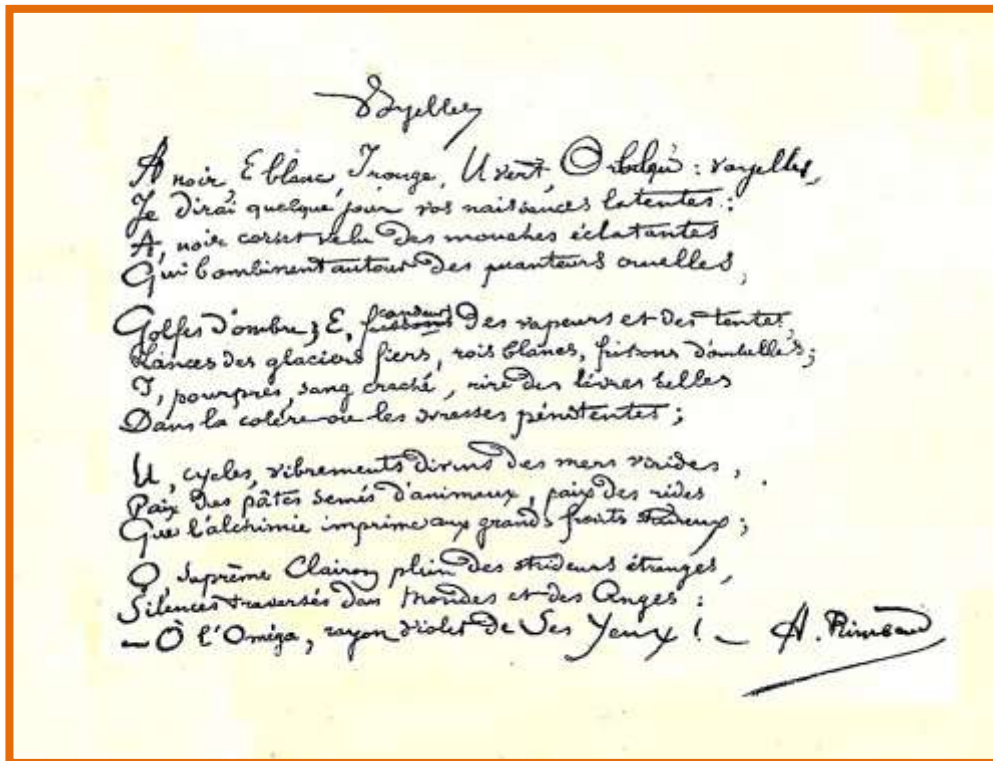 Voyelles
A noir, E blanc, I rouge, U vert, O bleu : voyelles,
Je dirai quelque jour vos naissances latentes :
A, noir corset velu des mouches éclatantes
Qui bombinent autour des puanteurs cruelles,
candeurs
Golfes d'ombre ; E, frissons des vapeurs et des tentes,
Lances des glaciers fiers, rois blancs, frissons d'ombelles ;
I, pourpres, sang craché, rire des lèvres belles
Dans la colère ou les ivresses pénitentes ;
U, cycles, vibrements divins des mers virides,
Paix des pâtis semés d'animaux, paix des rides
Que l'alchimie imprime aux grands fronts studieux ;
O, suprême Clairon plein des strideurs étranges,
Silences traversés des Mondes et des Anges :
— O l'Oméga, rayon violet de Ses Yeux ! — A. Rimbaud